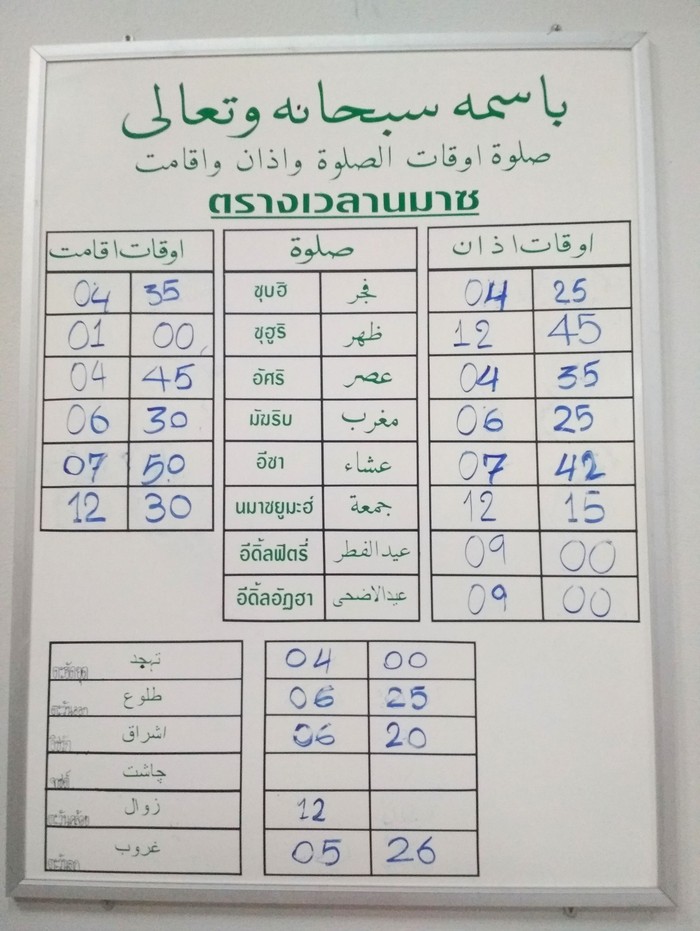 باسمه سبحانه وتعالى
صلوة اوقات الصلوة واذان واقامت
ตรางเวลานมาซ
اوقات اذان صلوة اوقات اقامت
04 35 ซุบฮิ فجر 04 25
01 00 ซุฮูริ ظهر 12 45
04 45 อัศริ عصر 04 35
06 30 มัฆริบ مغرب 06 25
07 50 อีชา عشاء 07 42
12 30 นมาซยูมะฮ์ جمعة 12 15
อีดิ้ลฟิตรี่ عيد الفطر 09 00
อีดิ้ลอัฎฮา عيدالاضحى 09 00
تہجد 04 00
طلوع 06 25
اشراق 06 20
چاشت
زوال 12
غروب 05 26